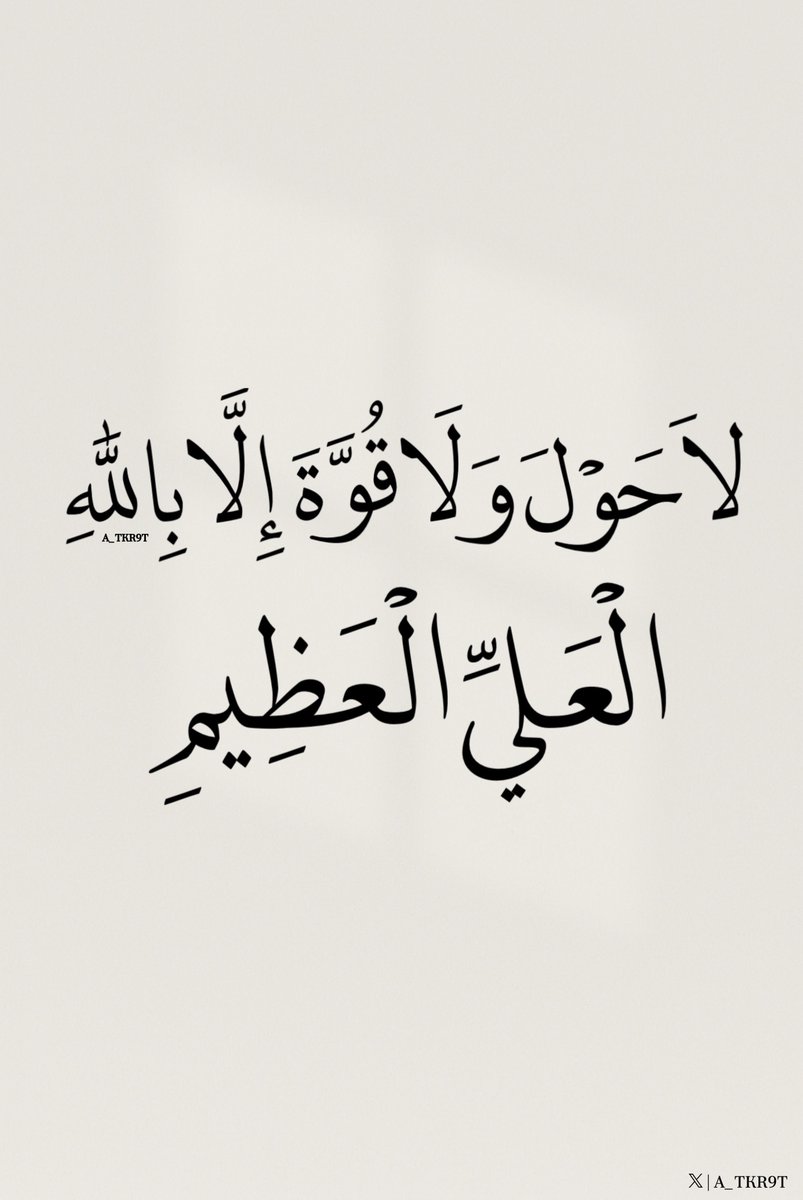 لاَ حَوْلَ وَلَا قُوَّةَ إِلَّا بِاللّٰهِ
A_TKR9T
الْعَليِّ الْعَظِيمِ
𝕏 | A_TKR9T